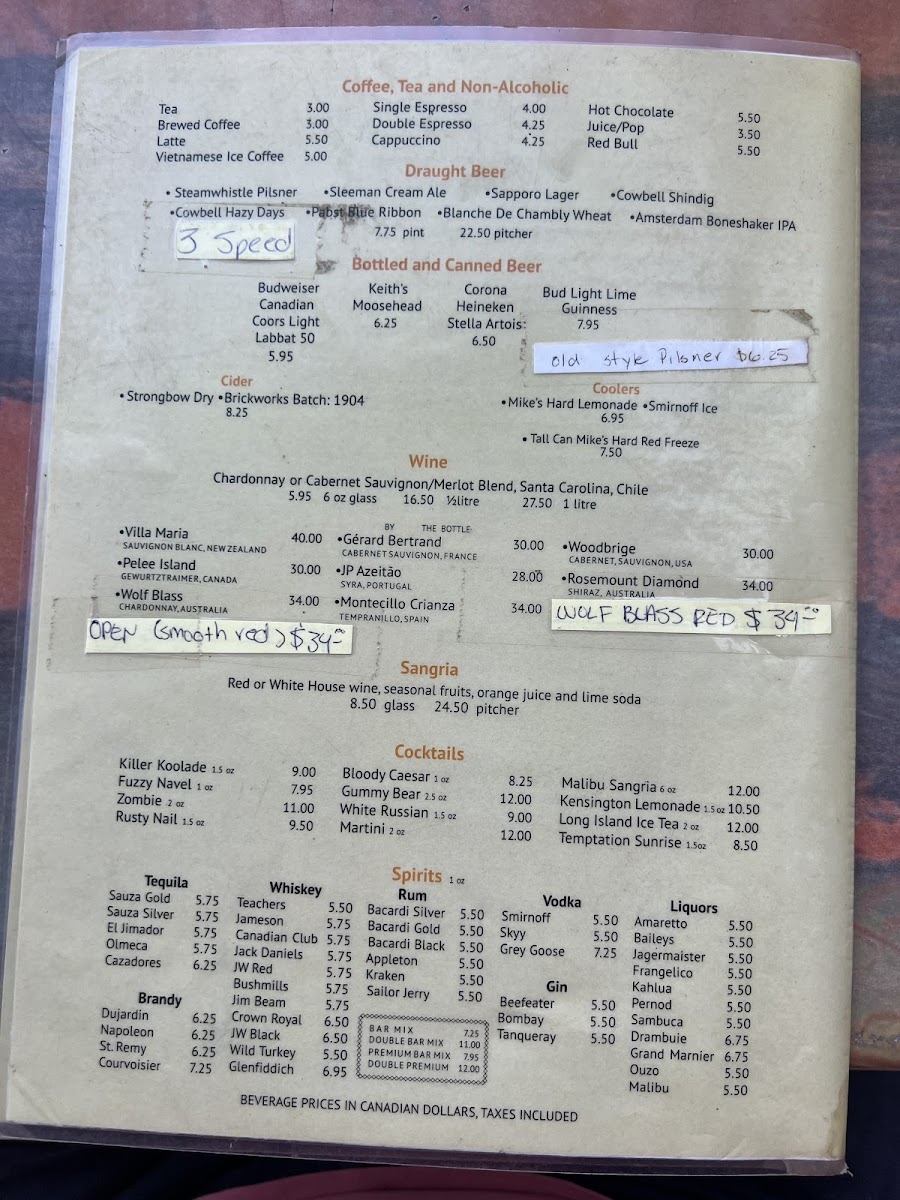 Coffee, Tea and Non-Alcoholic
Tea 3.00 Single Espresso 4.00 Hot Chocolate 5.50
Brewed Coffee 3.00 Double Espresso 4.25 Juice/Pop 3.50
Latte 5.50 Cappuccino 4.25 Red Bull 5.50
Vietnamese Ice Coffee 5.00
Draught Beer
• Steamwhistle Pilsner •Sleeman Cream Ale •Sapporo Lager •Cowbell Shindig
•Cowbell Hazy Days •Pabst Blue Ribbon •Blanche De Chambly Wheat •Amsterdam Boneshaker IPA
7.75 pint 22.50 pitcher
3 Speed
Bottled and Canned Beer
Budweiser Keith's Corona Bud Light Lime
Canadian Moosehead Heineken Guinness
Coors Light 6.25 Stella Artois: 7.95
Labbat 50 6.50
5.95
old style Pilsner $6.25
Cider
• Strongbow Dry •Brickworks Batch: 1904
8.25
Coolers
•Mike's Hard Lemonade •Smirnoff Ice
6.95
• Tall Can Mike's Hard Red Freeze
7.50
Wine
Chardonnay or Cabernet Sauvignon/Merlot Blend, Santa Carolina, Chile
5.95 6 oz glass 16.50 ½litre 27.50 1 litre
BY THE BOTTLE
•Villa Maria 40.00 •Gérard Bertrand 30.00 •Woodbrige 30.00
SAUVIGNON BLANC, NEW ZEALAND CABERNET SAUVIGNON, FRANCE CABERNET, SAUVIGNON, USA
•Pelee Island 30.00 •JP Azeitão 28.00 •Rosemount Diamond 34.00
GEWURTZTRAIMER, CANADA SYRA, PORTUGAL SHIRAZ, AUSTRALIA
•Wolf Blass 34.00 •Montecillo Crianza 34.00
CHARDONNAY, AUSTRALIA TEMPRANILLO, SPAIN
WOLF BLASS RED $34.00
OPEN (smooth red) $34.00
Sangria
Red or White House wine, seasonal fruits, orange juice and lime soda
8.50 glass 24.50 pitcher
Cocktails
Killer Koolade 1.5 oz 9.00 Bloody Caesar 1 oz 8.25 Malibu Sangria 6 oz 12.00
Fuzzy Navel 1 oz 7.95 Gummy Bear 2.5 oz 12.00 Kensington Lemonade 1.5 oz 10.50
Zombie 2 oz 11.00 White Russian 1.5 oz 9.00 Long Island Ice Tea 2 oz 12.00
Rusty Nail 1.5 oz 9.50 Martini 2 oz 12.00 Temptation Sunrise 1.5oz 8.50
Spirits 1 oz
Tequila
Sauza Gold 5.75
Sauza Silver 5.75
El Jimador 5.75
Olmeca 5.75
Cazadores 6.25
Brandy
Dujardin 6.25
Napoleon 6.25
St. Remy 6.25
Courvoisier 7.25
Whiskey
Teachers 5.50
Jameson 5.75
Canadian Club 5.75
Jack Daniels 5.75
JW Red 5.75
Bushmills 5.75
Jim Beam 5.75
Crown Royal 6.50
JW Black 6.50
Wild Turkey 5.50
Glenfiddich 6.95
Rum
Bacardi Silver 5.50
Bacardi Gold 5.50
Bacardi Black 5.50
Appleton 5.50
Kraken 5.50
Sailor Jerry 5.50
BAR MIX 7.25
DOUBLE BAR MIX 11.00
PREMIUM BAR MIX 7.95
DOUBLE PREMIUM 12.00
Vodka
Smirnoff 5.50
Skyy 5.50
Grey Goose 7.25
Gin
Beefeater 5.50
Bombay 5.50
Tanqueray 5.50
Liquors
Amaretto 5.50
Baileys 5.50
Jagermaister 5.50
Frangelico 5.50
Kahlua 5.50
Pernod 5.50
Sambuca 5.50
Drambuie 6.75
Grand Marnier 6.75
Ouzo 5.50
Malibu 5.50
BEVERAGE PRICES IN CANADIAN DOLLARS, TAXES INCLUDED